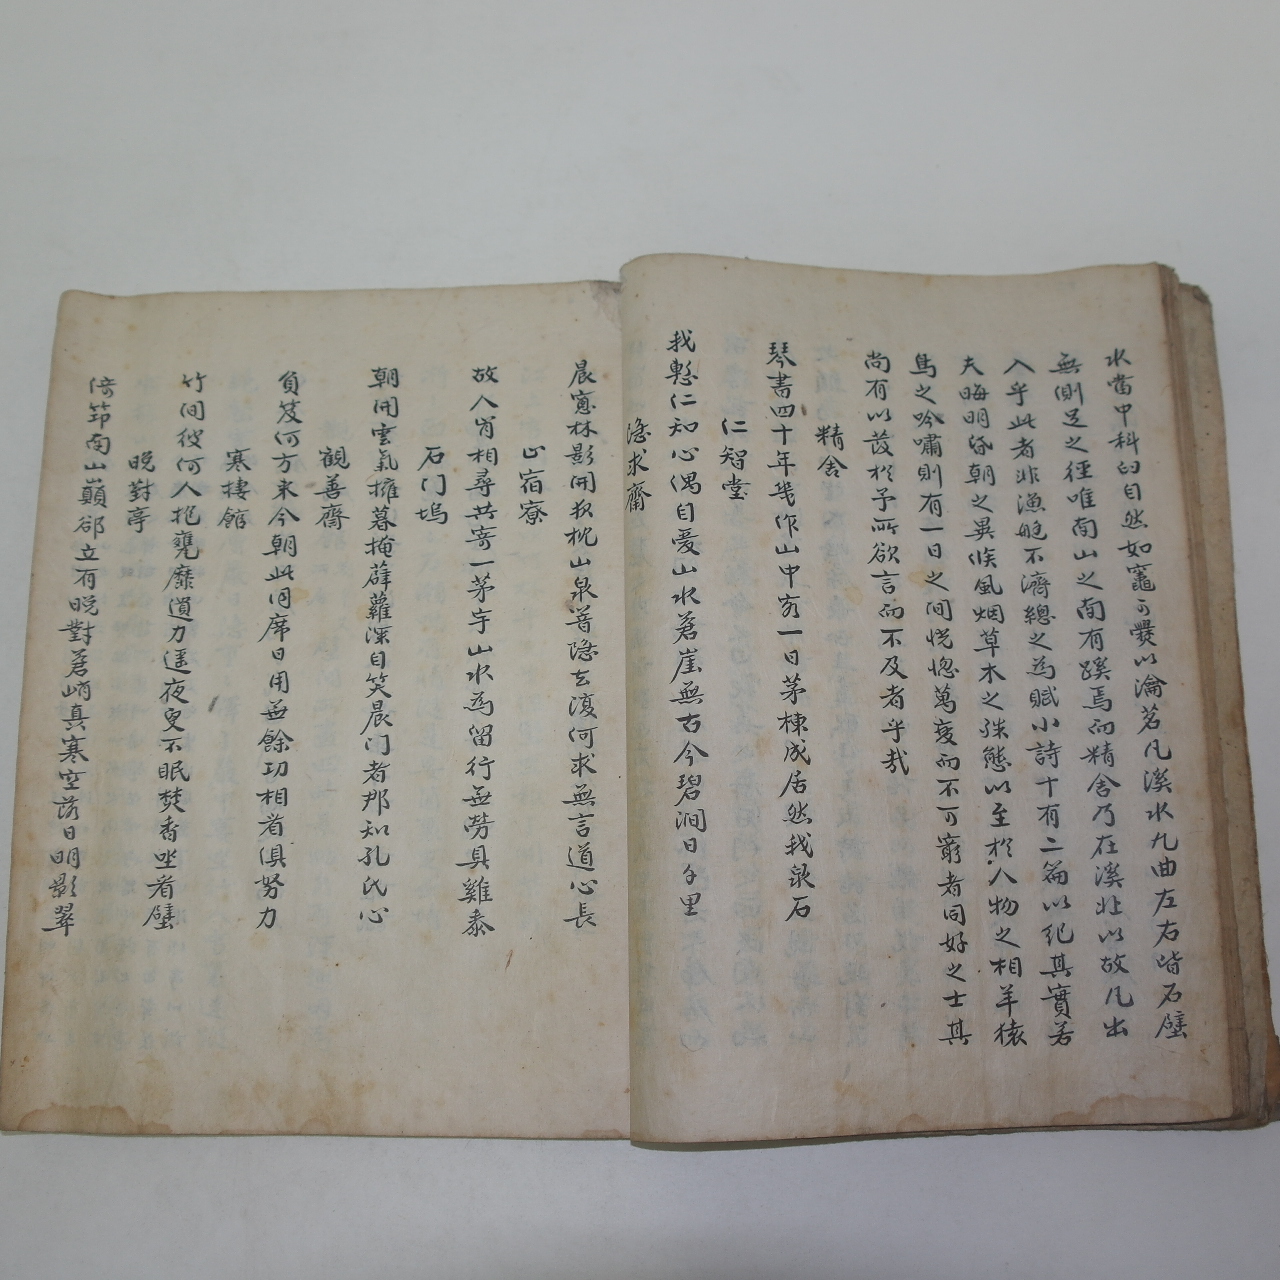 水當中科臼自然如竈可爨以瀹茗凡溪水九曲左右皆石壁
無側足之徑唯南山之南有蹊焉而精舍乃在溪北以故凡出
入乎此者非漁艇不濟總之為賦小詩十有二篇以紀其實若
夫晦明昏朝之異候風烟草木之殊態以至於人物之相羊猿
鳥之吟嘯則有一日之間恍惚萬變而不可窮者同好之士其
尚有以發於予所欲言而不及者乎哉
精舍
琴書四十年幾作山中客一日茅棟成居然我泉石
仁智堂
我慙仁知心偶自愛山水蒼崖無古今碧澗日千里
隐求齋
晨窓林影開夜枕山泉音隐去復何求無言道心長
止宿寮
故人肯相尋共寄一茅宇山水為留行無勞具雞黍
石门塢
朝開雲氣擁暮掩薜蘿深自笑晨门者那知孔氏心
観善齋
負笈何方来今朝此同席日用無餘功相看俱努力
寒棲館
竹间彼何人抱甕靡遺力遥夜更不眠焚香坐看壁
晚對亭
倚筇南山巔郤立有晚對蒼峭真寒空落日明影翠